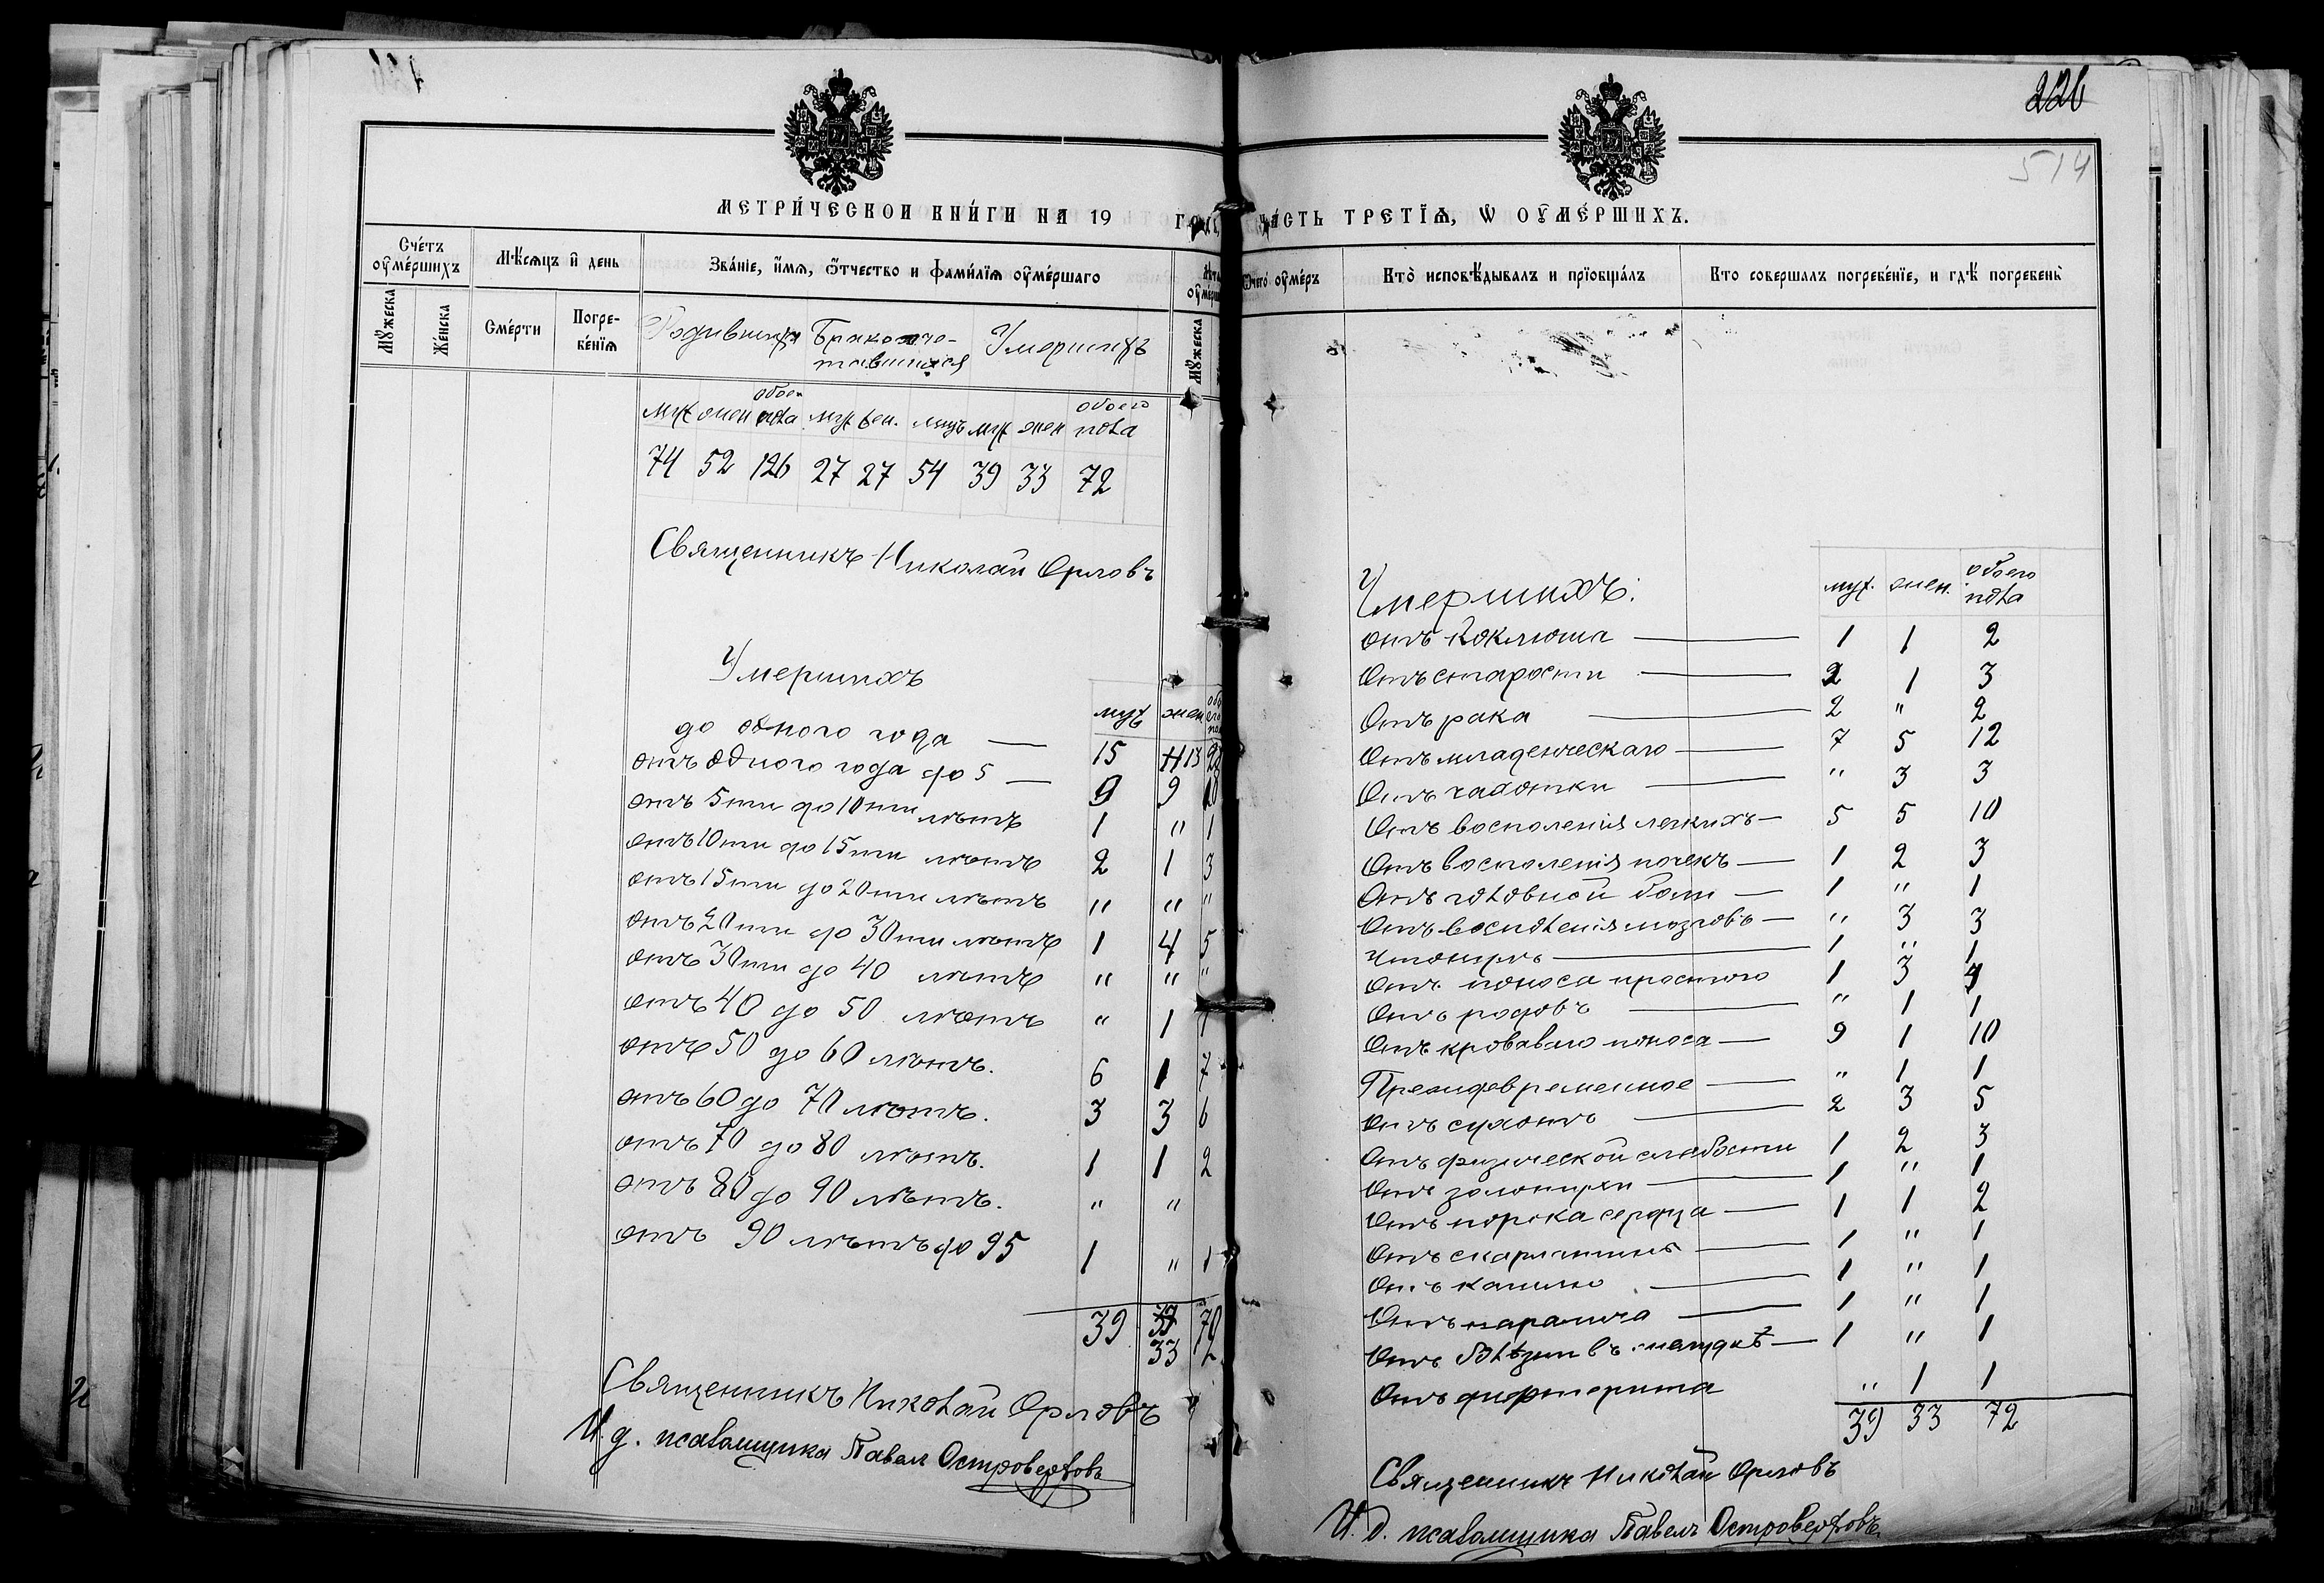 226
514
МЕТРИ́ЧЕСКОИ КНИ́ГИ НА 19 ГОДЪ, ЧА́СТЬ ТРЕТІѦ, Ѡ ОУ҆МЕ́РШИХЪ.
Сче́тъ оу҆ме́ршихъ
Мꙋ́жеска
Же́нска
Мѣ́сяцъ и҆ день
Сме́рти
Погре-
бе́нїя
Зва́нїе, и҆́мя, ѻ҆́тчество и фами́лїя оу҆ме́ршаго
Мꙋ́жеска
Ѿ чего̀ оу҆́меръ
Кто̀ исповѣ́дывалъ и прїобща́лъ
Кто совершалъ погребе́нїе, и гдѣ̀ погребены̀
Родившихся Бракосоче- Умершихъ
тавшихся
муж жен обоего пола муж жен. лицъ муж жен обоего пола
74 52 126 27 27 54 39 33 72
Священникъ Николай Орловъ
Умершихъ
муж жен обоего пол
до одного года — 15 13
отъ одного года до 5 — 9 9 18
отъ 5ти до 10ти лѣтъ 1 " 1
отъ 10ти до 15ти лѣтъ 2 1 3
отъ 15ти до 20ти лѣтъ " " "
отъ 20ти до 30ти лѣтъ 1 4 5
отъ 30ти до 40 лѣтъ " " "
отъ 40 до 50 лѣтъ " 1 1
отъ 50 до 60 лѣтъ. 6 1 7
отъ 60 до 70 лѣтъ. 3 3 6
отъ 70 до 80 лѣтъ. 1 1 2
отъ 80 до 90 лѣтъ. " "
отъ 90 лѣтъ до 95 1 " 1
39 33 72
Священникъ Николай Орловъ
И. д. псаломщика Павелъ Островерховъ
Умершихъ: муж. жен. обоего пола
отъ коклюша — 1 1 2
Отъ старости — 2 1 3
Отъ рака — 2 " 2
Отъ младенческаго — 7 5 12
Отъ чахотки — " 3 3
Отъ воспаленія легкихъ — 5 5 10
Отъ воспаленія почекъ — 1 2 3
Отъ головной боли — 1 " 1
Отъ воспаленія мозговъ — " 3 3
Утонулъ — 1 " 1
Отъ поноса простого 1 3 4
Отъ родовъ — " 1 1
Отъ кроваваго поноса — 9 1 10
Преждевременное — " 1 1
Отъ сухотъ — 2 3 5
Отъ физической слабости 1 2 3
Отъ золотухи — 1 " 1
Отъ порока сердца — 1 1 2
Отъ скарлатины — 1 " 1
Отъ кашлю — 1 " 1
Отъ паралича — 1 " 1
Отъ болѣзни въ желудкѣ — 1 " 1
Отъ дифтерита " 1 1
39 33 72
Священникъ Николай Орловъ
И. д. псаломщика Павелъ Островерховъ.